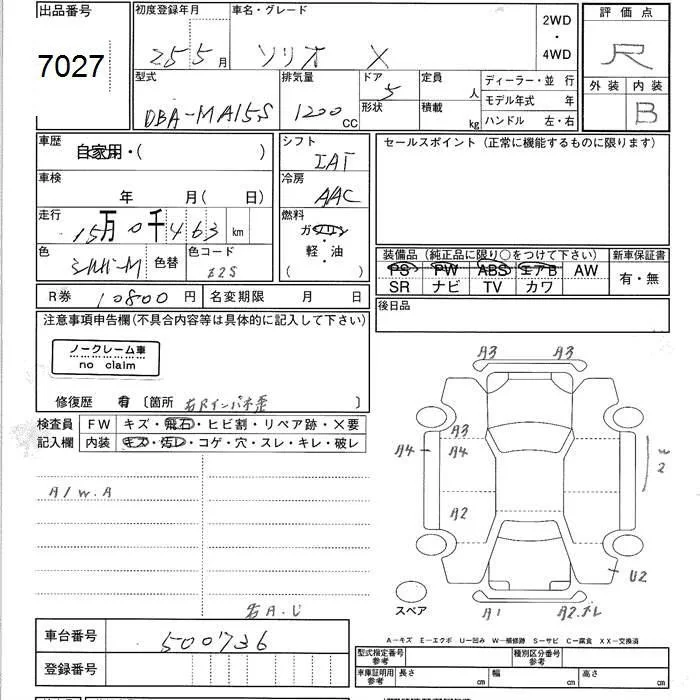 出品番号
7027
初度登録年月
25 5月
車名・グレード
ソリオ X
2WD
・
4WD
評価点
R
外装 内装
B
型式
DBA-MA15S
排気量
1200 CC
ドア
5
形状
定員
人
積載
kg
ディーラー・並 行
モデル年式 年
ハンドル 左・右
車歴
自家用・( )
車検
年 月( 日)
走行
15万0千463 km
色
シルバーM
色替
色コード
Z2S
シフト
IAT
冷房
AAC
燃料
ガソリン
軽・油
( )
セールスポイント (正常に機能するものに限ります)
装備品 (純正品に限り○をつけて下さい)
PS PW ABS エアB AW
SR ナビ TV カワ
新車保証書
有・無
後日品
R券 10800 円
名変期限 月 日
注意事項申告欄(不具合内容等は具体的に記入して下さい)
ノークレーム車
no claim
修復歴 有 〔箇所 右Rインパネ歪 〕
検査員
記入欄
FW キズ・飛石・ヒビ割・リペア跡・×要
内装 キズ・汚レ・コゲ・穴・スレ・キレ・破レ
A/W.A
右A.U
A3 A3
A3
A4 A4
A2
W
2
U2
A1 A2.ホレ
スペア
A-キズ E-エクボ U-凹み W-補修跡 S-サビ C-腐食 XX-交換済
車台番号 500736
登録番号
型式指定番号
参考
種別区分番号
参考
車庫証明用
参考
長さ cm 幅 cm 高さ cm